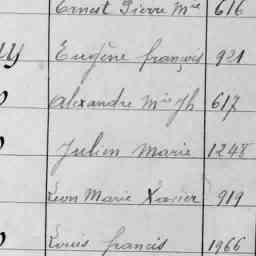 Ernest Pierre Mie 616
Eugène françois 921
alexandre Mie Jh 617
Julien Marie 1248
Léon Marie Xavier 919
Louis francis 1966